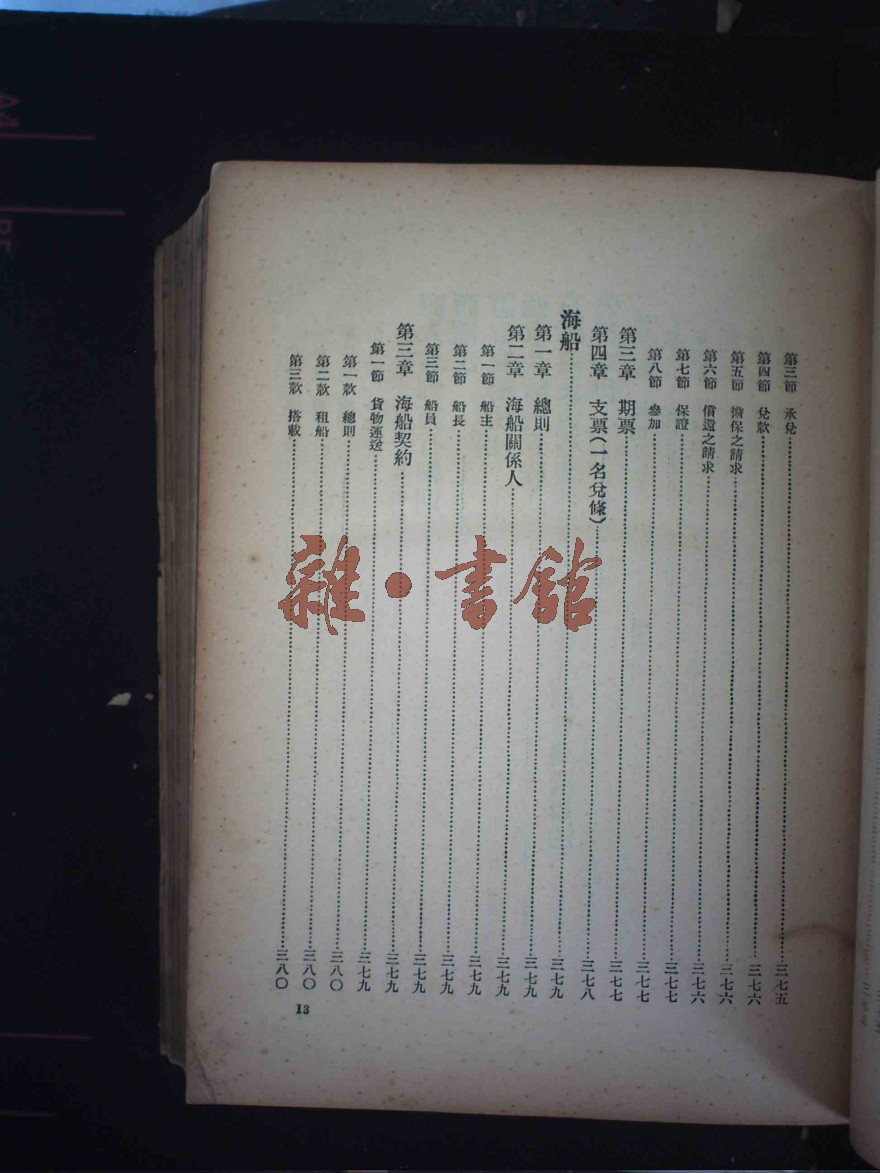 第三節 承兌……三七五
第四節 兌款……三七六
第五節 擔保之請求……三七六
第六節 償還之請求……三七六
第七節 保證……三七七
第八節 參加……三七七
第三章 期票……三七七
第四章 支票(一名兌條)……三七八
海船……三七九
第一章 總則……三七九
第二章 海船關係人……三七九
第一節 船主……三七九
第二節 船長……三七九
第三節 船員……三七九
第三章 海船契約……三七九
第一節 貨物運送……三七九
第一款 總則……三八〇
第二款 租船……三八〇
第三款 搭載……三八〇
13
雜·書館
A4